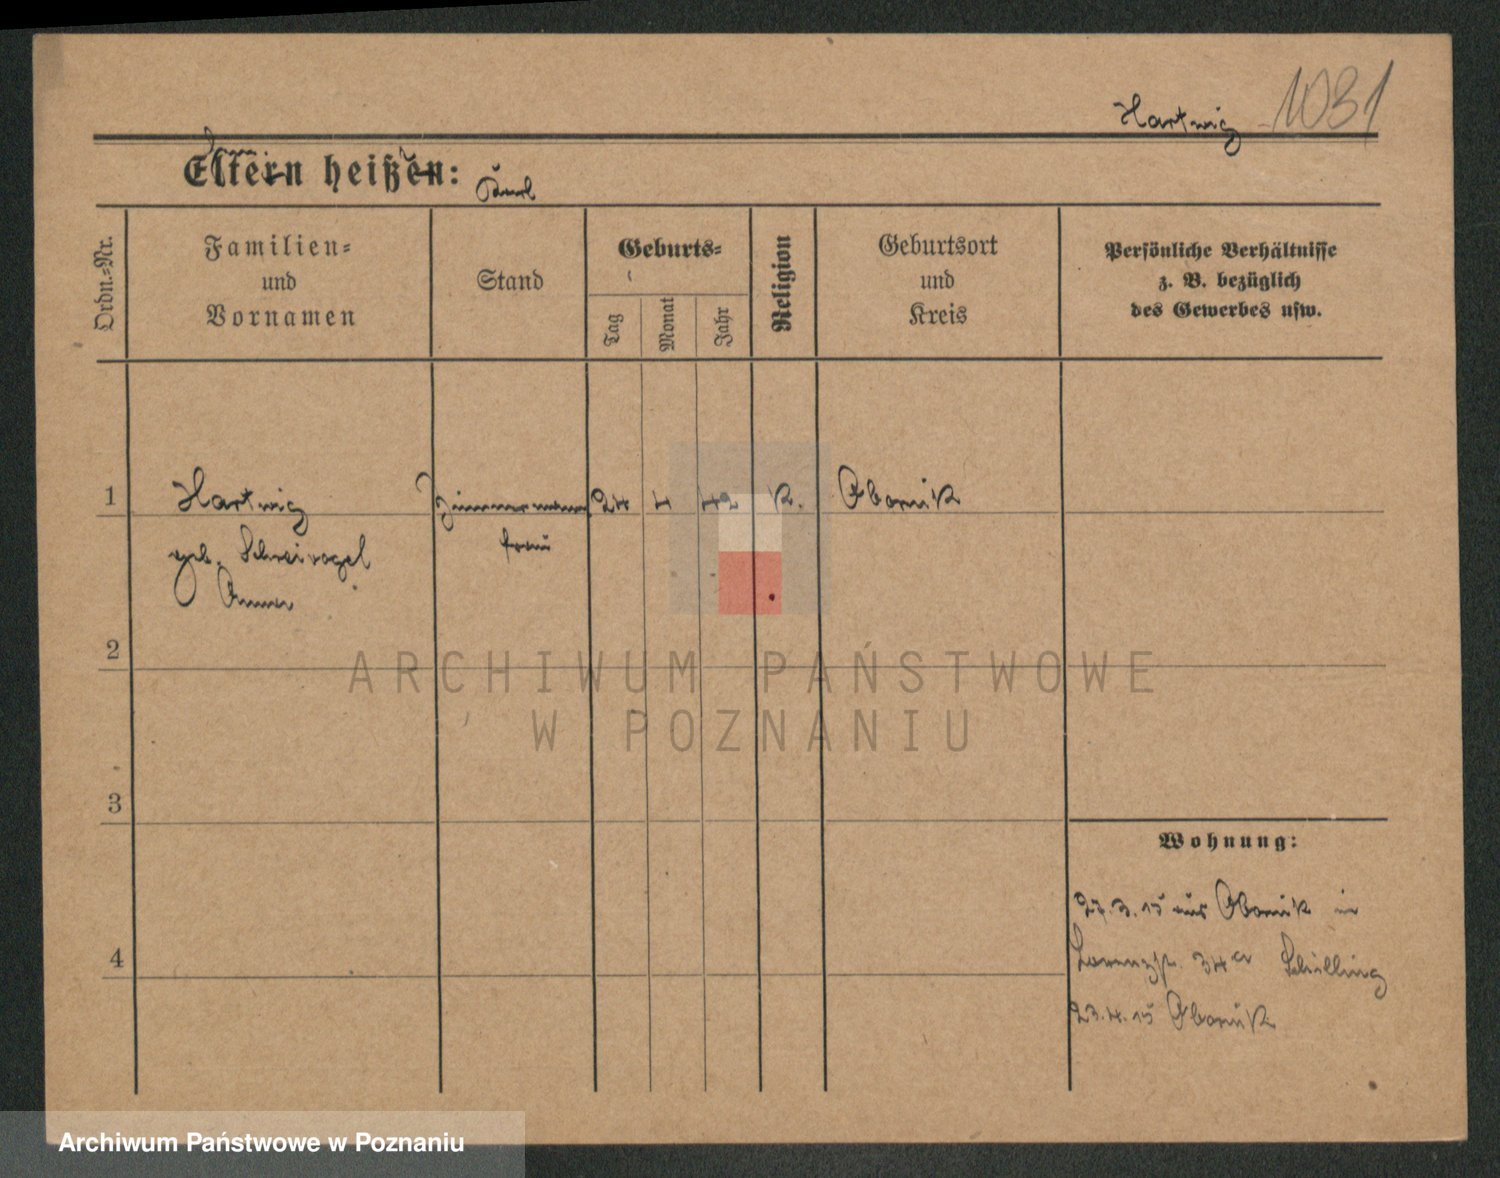 Hartwig 1031
Eltern heißen:
Ordn.=Nr.
Familien=
und
Vornamen
Stand
Geburts=
Tag
Monat
Jahr
Religion
Geburtsort
und
Kreis
Persönliche Verhältnisse
z. B. bezüglich
des Gewerbes usw.
1 Hartwig Zimmermann 24 I 72 K. Obornik
geb. Schreivogel frau
Anna
2
3
4
Wohnung:
27.3.15 aus Obornik in
34a Schilling
23.4.15 Obornik
ARCHIWUM PAŃSTWOWE
W POZNANIU
Archiwum Państwowe w Poznaniu